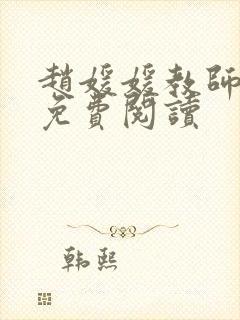 趙媛媛教師
免費閱讀
韩熙